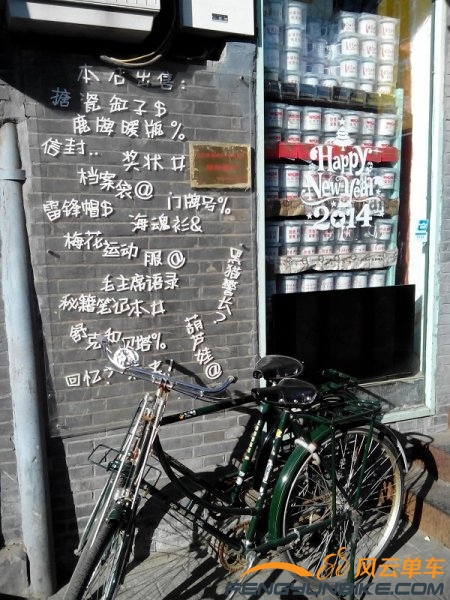 本店出售:
搪瓷缸子$
鹿牌暖瓶%
信封.. 奖状#
档案袋@
门牌号%
雷锋帽$
海魂衫&
梅花运动服@
毛主席语录
秘籍笔记本#
舒克和贝塔%
回忆
黑猫警长
葫芦娃@
Happy
New Year
2014
风云单车
FENGYUNBIKE.COM